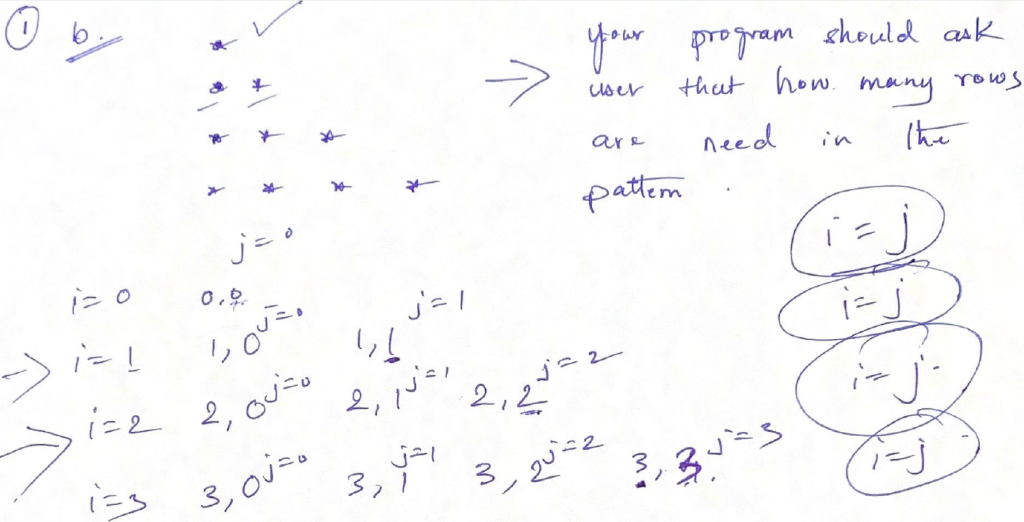 ① b. * ✓
* *
* * *
* * * *
→ your program should ask
user that how many rows
are need in the
pattern.
j=0
i=0 0,0
i=1 1,0 j=0 1,1 j=1
i=2 2,0 j=0 2,1 j=1 2,2 j=2
i=3 3,0 j=0 3,1 j=1 3,2 j=2 3,3 j=3
i=j
i=j
i=j
i=j